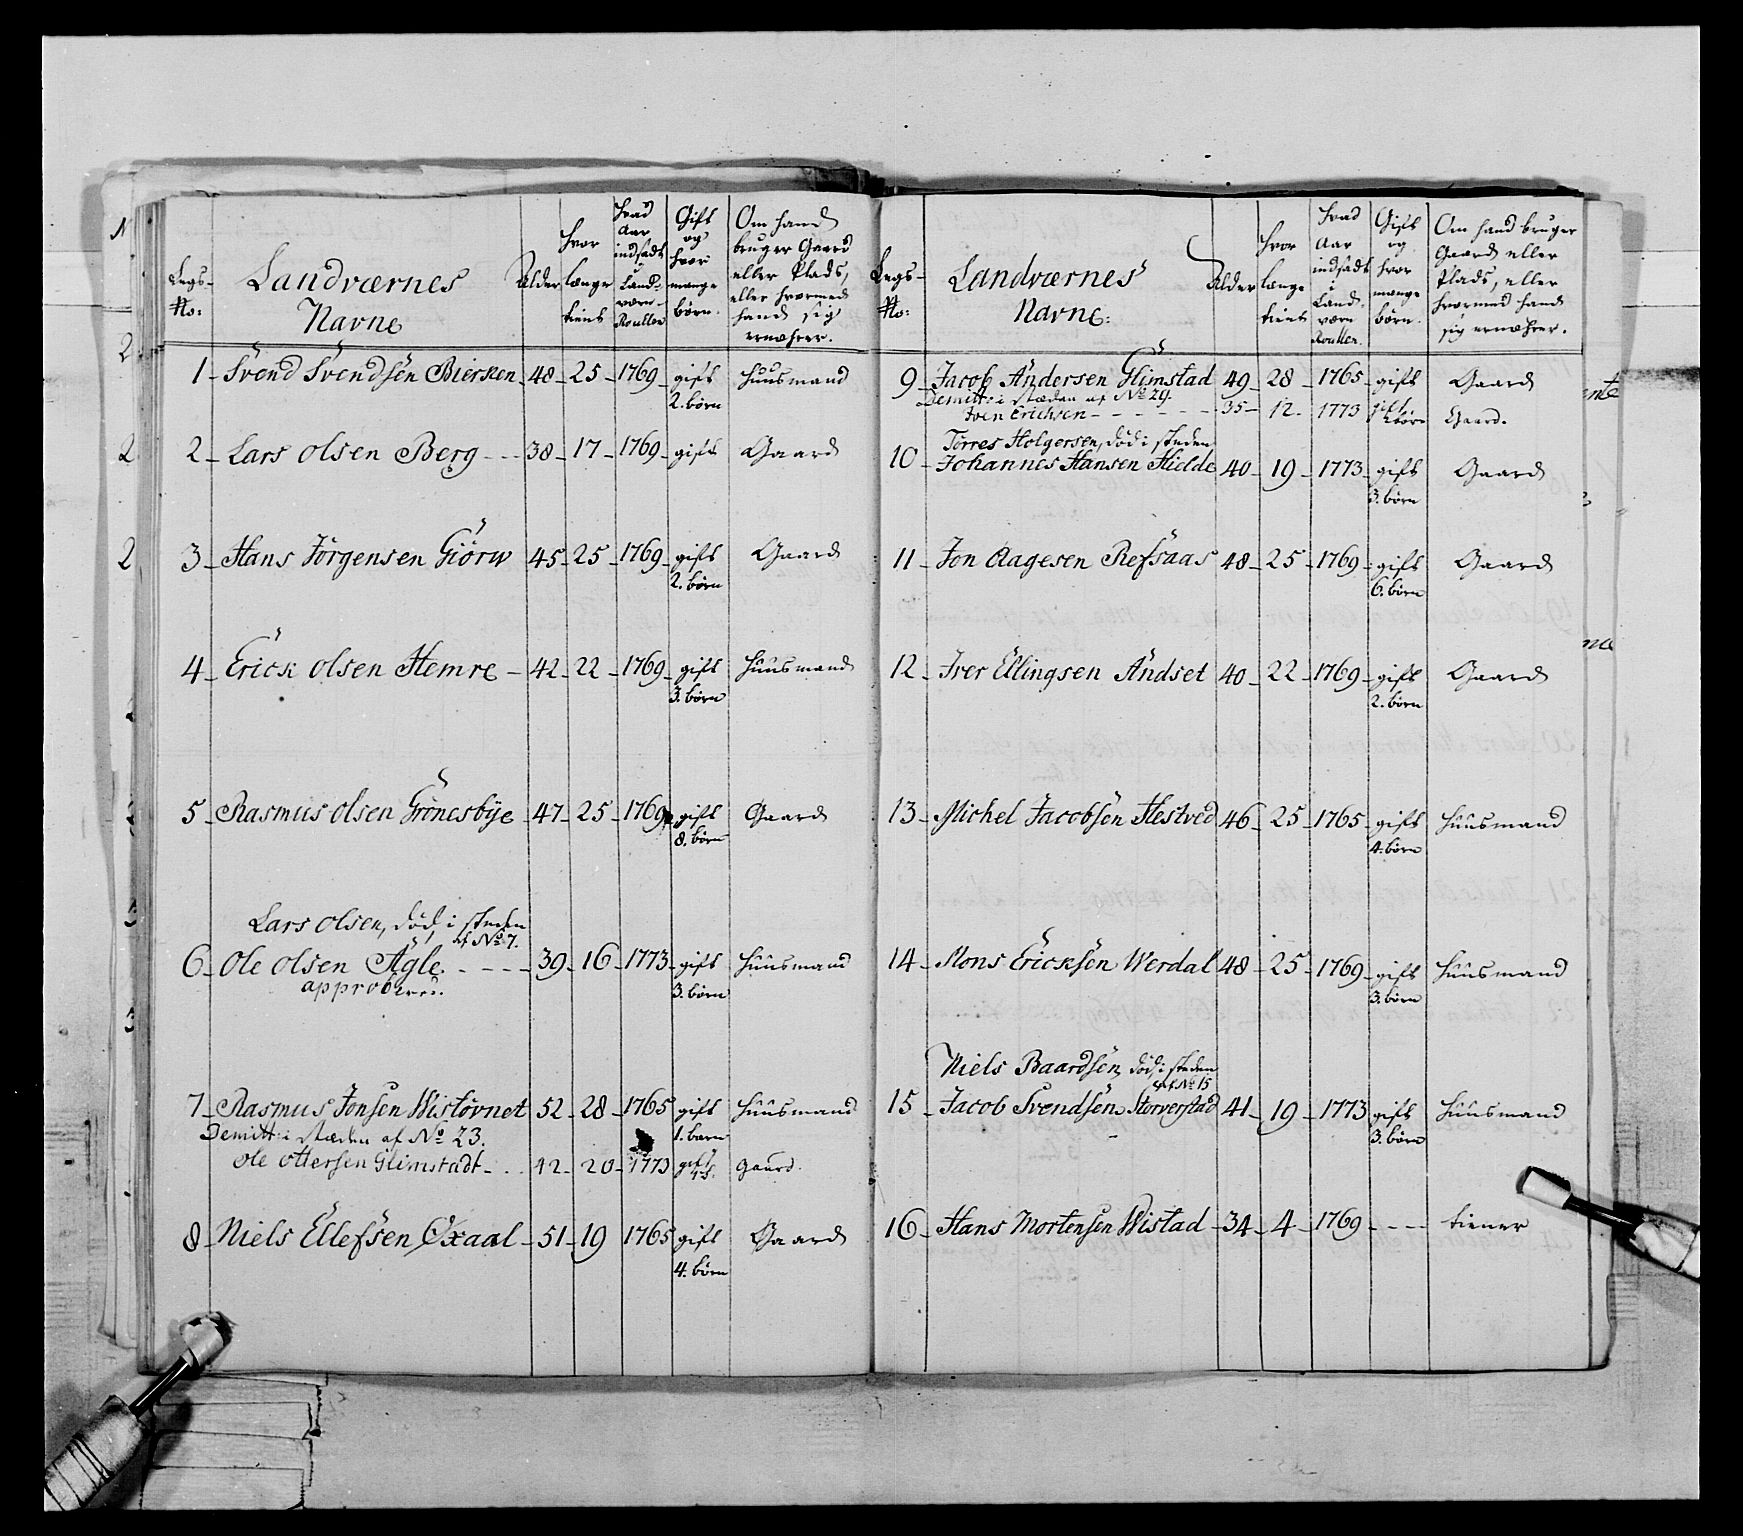 Legs-
No:
Landværnes
Navne
Alder
hvor
længe
tient
hvad
Aar
indsadt
i
Land-
værn-
Roullen
Gift
og
hvor
mange
børn.
Om hand
bruger Gaard
eller Plads,
eller hvormed
hand sig
ernæhrer.
1 - Svend Svendsen Biersken - 48 - 25 - 1769 - gift Huusmand
2. børn
2 - Lars Olsen Berg - - - 38 - 17 - 1769 - gift Gaard
3 - Hans Jörgensen Giörw 45 - 25 - 1769 - gift Gaard
2. børn
4 - Erick Olsen Hemre - 42 - 22 - 1769 - gift Huusmand
3. børn
5 - Rasmus Olsen Grönesbÿe - 47 - 25 - 1769 gift Gaard
8. børn
Lars Olsen, død, i steden
af No 7.
6 - Ole Olsen Ägle - - - - 39 - 16 - 1773 - gift Huusmand
approberet. 3. børn
7 - Rasmus Jonsen Wistövnet 52 - 28 - 1765 gift Huusmand
Demitt: i stæden af No 23. 1. barn
Ole Ottersen Glimstadt - . . 42 - 20 - 1773 gift Gaard.
8 - Niels Ellefsen Oxaal - 51 - 19 1765 gift Gaard
4. børn
Legs-
No:
Landværnes
Navne:
Alder
hvor
længe
tient
hvad
Aar
indsadt
i
Land-
værn
Roullen.
Gift
og
hvor
mange
børn.
Om hand bruger
Gaard eller
Plads, eller
hvormed hand
sig ernæhrer.
9 - Jacob Andersen Glimstad 49 - 28 - 1765 - gift Gaard
Demitt: i stæden af No 29.
Iven Erichsen - - - - - - 35 - 12. 1773 gift børn Gaard.
Törres Holgersen, död i steden
10 - Johannes Hansen Hielde 40 - 19 - 1773 - gift Gaard
3. børn
11 - Jon Aagesen Refsaas 48 - 25 - 1769 - gift Gaard
6. børn
12 - Iver Ellingsen Andset 40 - 22 - 1769 - gift Gaard
2. børn
13 - Michel Jacobsen Hestved 46 - 25 - 1765 - gift Huusmand
4. børn
14 - Mons Ericksen Werdal 48 - 25 - 1769 - gift Huusmand
3. børn
Niels Baardsen, död, i steden
af No 15
15 - Jacob Svendsen Storverstad 41 - 19 - 1773 gift Huusmand
3. børn
16 - Hans Mortensen Wistad - 34 - 4 - 1769 - - - - tiener